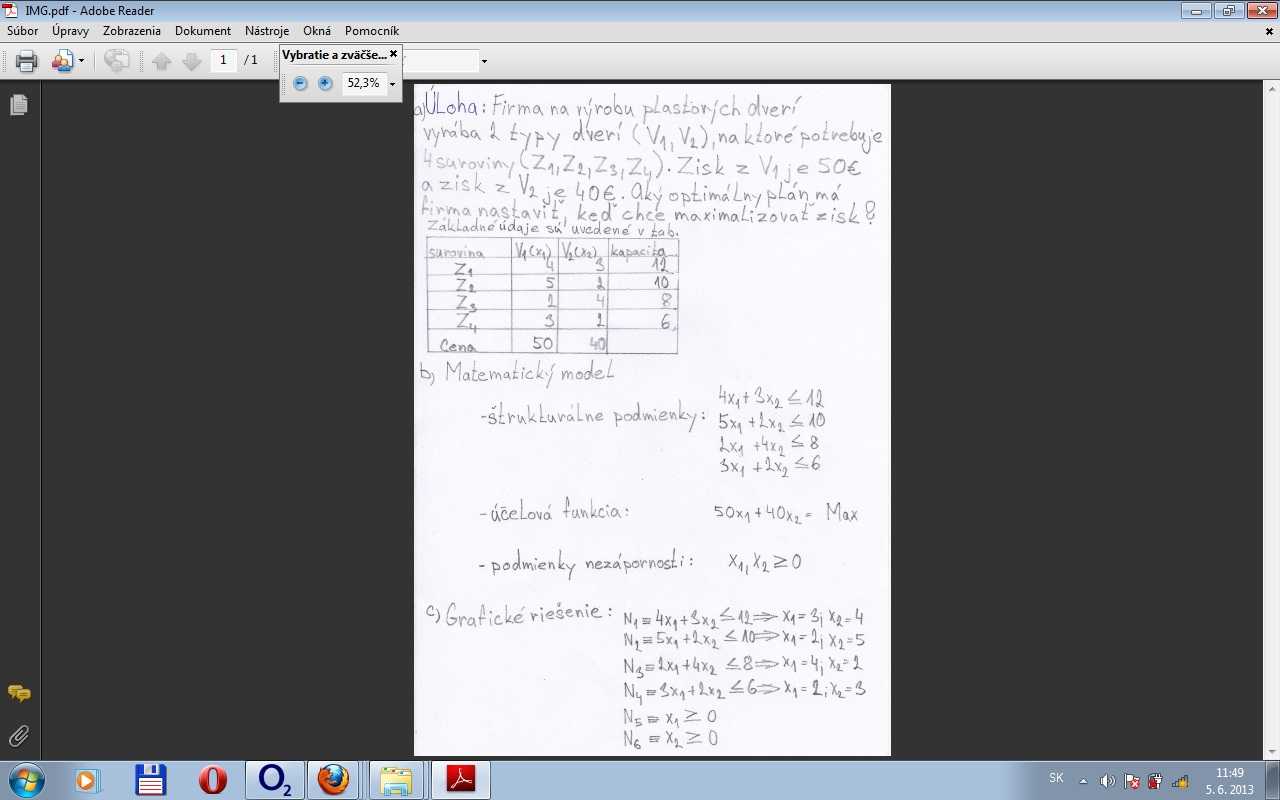 IMG.pdf - Adobe Reader
Súbor Úpravy Zobrazenia Dokument Nástroje Okná Pomocník
1 / 1
Vybratie a zväčše...
52,3%
a) Úloha: Firma na výrobu plastových dverí
vyrába 2 typy dverí (V1, V2), na ktoré potrebuje
4 suroviny (Z1, Z2, Z3, Z4). Zisk z V1 je 50€
a zisk z V2 je 40€. Aký optimálny plán má
firma nastaviť, keď chce maximalizovať zisk?
Základné údaje sú uvedené v tab.
surovina V1(x1) V2(x2) kapacita
Z1 4 3 12
Z2 5 2 10
Z3 2 4 8
Z4 3 2 6
Cena 50 40
b) Matematický model
-štrukturálne podmienky: 4x1 + 3x2 ≤ 12
5x1 + 2x2 ≤ 10
2x1 + 4x2 ≤ 8
3x1 + 2x2 ≤ 6
- účelová funkcia: 50x1 + 40x2 = Max
- podmienky nezápornosti: X1, X2 ≥ 0
c) Grafické riešenie: N1 ≡ 4x1 + 3x2 ≤ 12 ⇒ x1 = 3; x2 = 4
N2 ≡ 5x1 + 2x2 ≤ 10 ⇒ x1 = 2; x2 = 5
N3 ≡ 2x1 + 4x2 ≤ 8 ⇒ x1 = 4; x2 = 2
N4 ≡ 3x1 + 2x2 ≤ 6 ⇒ x1 = 2; x2 = 3
N5 ≡ x1 ≥ 0
N6 ≡ x2 ≥ 0
O2
SK
11:49
5. 6. 2013